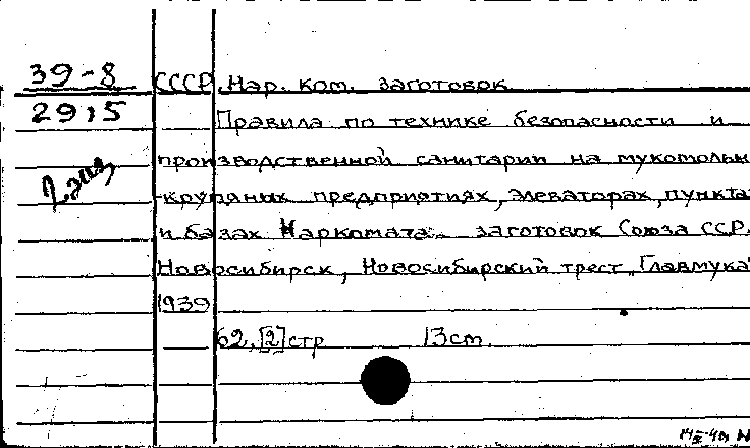 39-8
2915
2 экз
СССР. Нар. ком. заготовок
Правила по технике безопасности и
производственной санитарии на мукомольн
крупяных предприятиях, элеваторах, пункта
и базах Наркомата заготовок Союза ССР.
Новосибирск, Новосибирский трест „Главмука"
1939
62, [2] стр 13 cm.